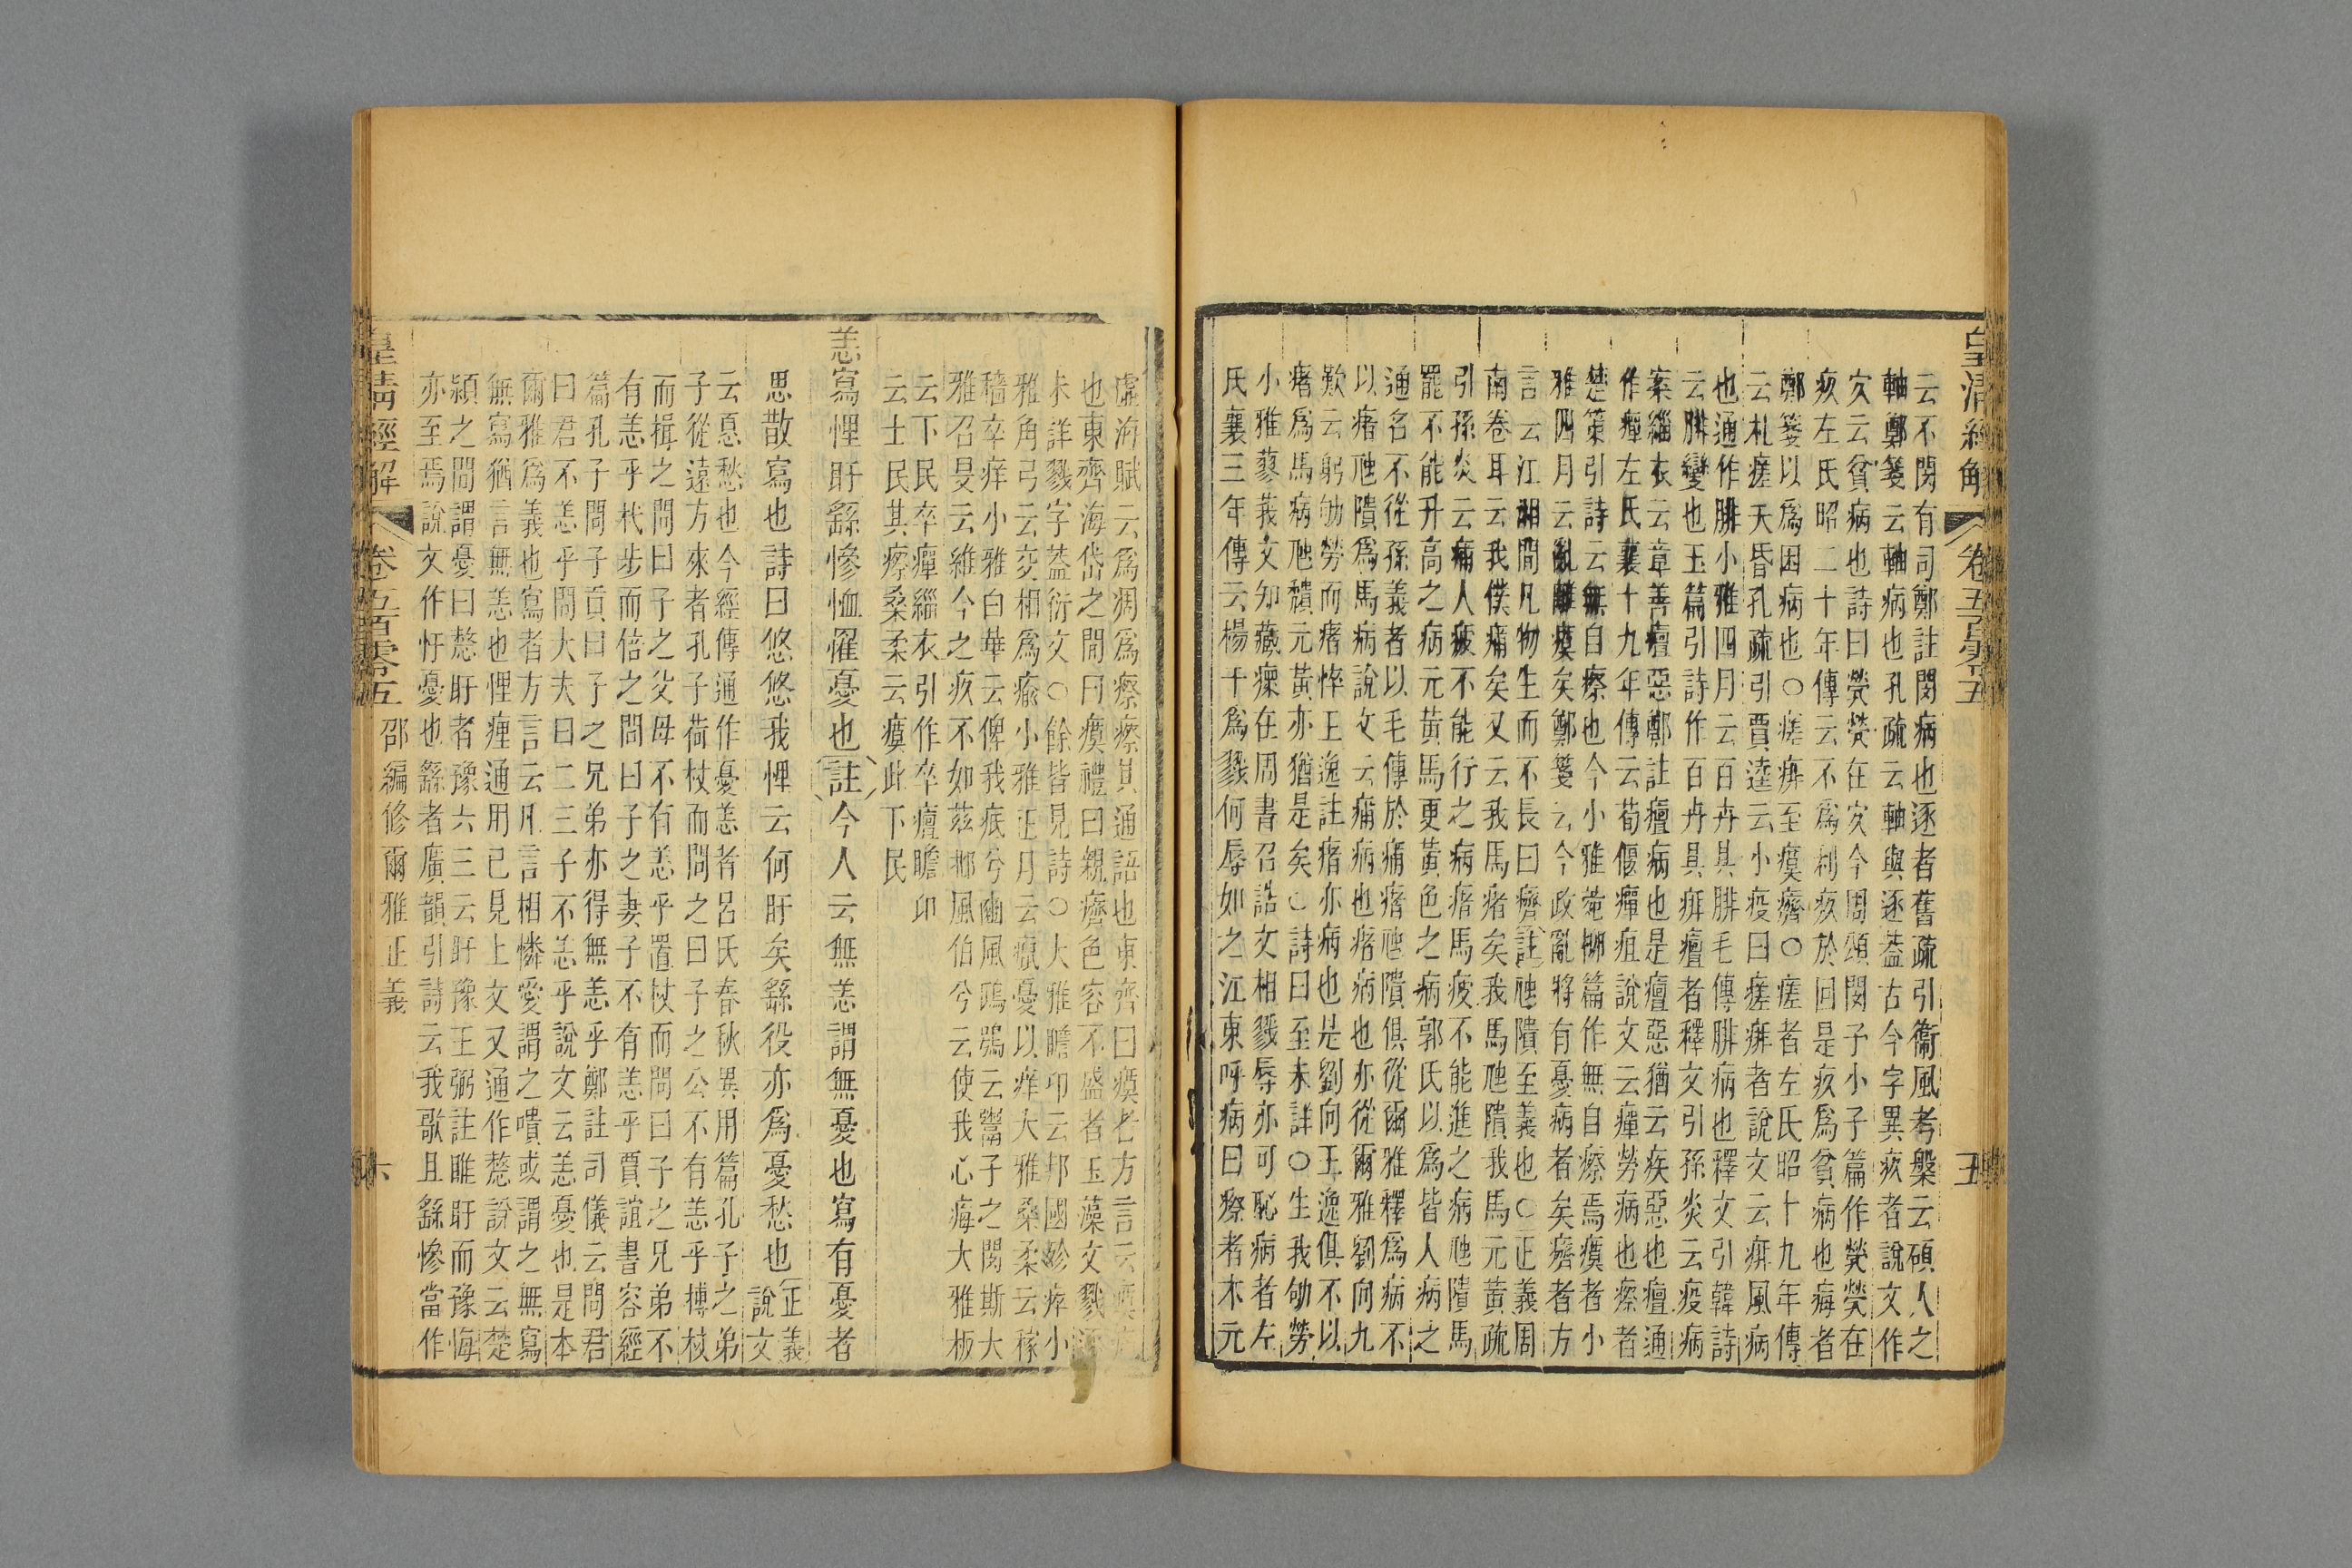 皇清經解 卷五百零五 五
云不閔有司鄭註閔病也逐者舊疏引衞風考槃云碩人之
軸鄭箋云軸病也孔疏云軸與逐葢古今字異疚者說文作
㝌云貧病也詩曰煢煢在㝌今周頌閔予小子篇作煢煢在
疚左氏昭二十年傳云不爲利疚於回是疚爲貧病也痗者
鄭箋以爲困病也○瘥痹至瘼癠○瘥者左氏昭十九年傳
云札瘥夭昏孔疏引賈逵云小疫曰瘥痹者說文云痹風病
也通作腓小雅四月云百卉具腓毛傳腓病也釋文引韓詩
云腓變也玉篇引詩作百卉具痱癉者釋文引孫炎云疫病
案緇衣云章善癉惡鄭註癉病也是癉惡猶云疾惡也癉通
作癉左氏襄十九年傳云荀偃癉疽說文云癉勞病也瘵者
楚策引詩云無自瘵也今小雅菀柳篇作無自瘵焉瘼者小
雅四月云亂離瘼矣鄭箋云今政亂將有憂病者矣癠者方
言云江湘間凡物生而不長曰癠 註 虺隤至義也○正義周
南卷耳云我僕痡矣又云我馬瘏矣我馬虺隤我馬元黃疏
引孫炎云痡人疲不能行之病瘏馬疲不能進之病虺隤馬
罷不能升高之病元黃馬更黃色之病郭氏以爲皆人病之
通名不從孫義者以毛傳於痡瘏虺隤俱從爾雅釋爲病不
以瘏虺隤爲馬病說文云痡病也瘏病也亦從爾雅劉向九
歎云躬劬勞而瘏悴王逸註瘏亦病也是劉向王逸俱不以
瘏爲馬病虺穨元黃亦猶是矣○詩曰至未詳○生我劬勞
小雅蓼莪文知藏瘝在周書召誥文相戮辱亦可恥病者左
氏襄三年傳云楊干爲戮何辱如之江東呼病曰瘵者木元
虛海賦云爲凋爲瘵瘵其通語也東齊曰瘼者方言云瘼病
也東齊海岱之間曰瘼禮曰親癠色容不盛者玉藻文戮逐
未詳戮字葢衍文○餘皆見詩○大雅瞻卬云邦國殄瘁小
雅角弓云交相爲瘉小雅正月云癙憂以痒大雅桑柔云稼
穡卒痒小雅白華云俾我疧兮豳風鴟鴞云鬻子之閔斯大
雅召旻云維今之疚不如茲邶風伯兮云使我心痗大雅板
云下民卒癉緇衣引作卒癉瞻卬
云士民其瘵桑柔云瘼此下民
恙寫悝盱繇慘恤罹憂也 註 今人云無恙謂無憂也寫有憂者
思散寫也詩曰悠悠我悝云何盱矣繇役亦爲憂愁也 正義 說文
云恴愁也今經傳通作憂恙者呂氏春秋異用篇孔子之弟
子從遠方來者孔子荷杖而問之曰子之公不有恙乎搏杖
而揖之問曰子之父母不有恙乎置杖而問曰子之兄弟不
有恙乎杙步而倍之問曰子之妻子不有恙乎賈誼書容經
篇孔子問子貢曰子之兄弟亦得無恙乎鄭註司儀云問君
曰君不恙乎問大夫曰二三子不恙乎說文云恙憂也是本
爾雅爲義也寫者方言云凡言相憐愛謂之嘳或謂之無寫
無寫猶言無恙也悝㾖通用已見上文又通作㹈說文云楚
潁之間謂憂曰㹈盱者豫六三云盱豫王弼註睢盱而豫悔
亦至焉說文作忬憂也繇者廣韻引詩云我歌且繇慘當作
皇清經解 卷五百零五 邵編修爾雅正義 六